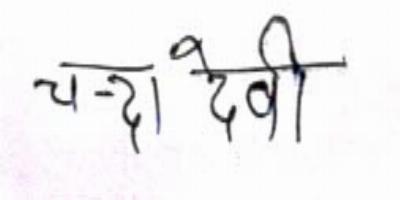 चन्दा देवी